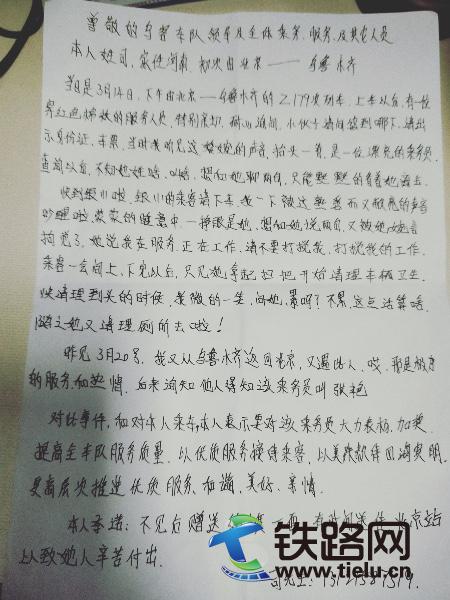 尊敬的乌客车队领导及全体乘务、服务、及其它人员
本人姓司,家住河南,初次由北京——乌鲁木齐
当日是3月14日,下午由北京——乌鲁木齐的Z179次列车,上车以后,有一位
身红色的服务人员,特别亲切,小伙子请问您到哪下,请出
示身份证,车票,当时我听见这的声音,抬头一看,是一位漂亮的乘务员,
查阅以后,不知她姓啥,叫啥,想和她聊两句,只能默默的看着她离去,
收到银川啦,银川的乘客请下车,我一下被这而又的声音
吵醒啦,的睡意中,一种是她,想和她说两句,又被她
拘,她说我在服务,正在工作,请不要打扰我,打扰我的工作,
乘客一会问上,下完以后,只见她拿起拖把开始清理车厢卫生,
快清理到头的时候,我微的一笑,问她,累吗?不累这点活算啥,
随之她又清理厕所去啦!
昨儿3月20号,我又从乌鲁木齐返回北京,又遇此人,哎,那是
的服务和热情,后来询知他人得知该乘务员叫张艳
对此事件,和对本人乘车,本人表示要对该乘务员大力表扬,加快
提高全车队服务质量,以优质服务接待乘客,以美
更高层次推进优质服务,和谐,美好,亲情.
本人承诺:不久后赠送一面,有时间送往北京站
以致她人辛苦付出.
司先生:
铁路网
www.tielu.cn